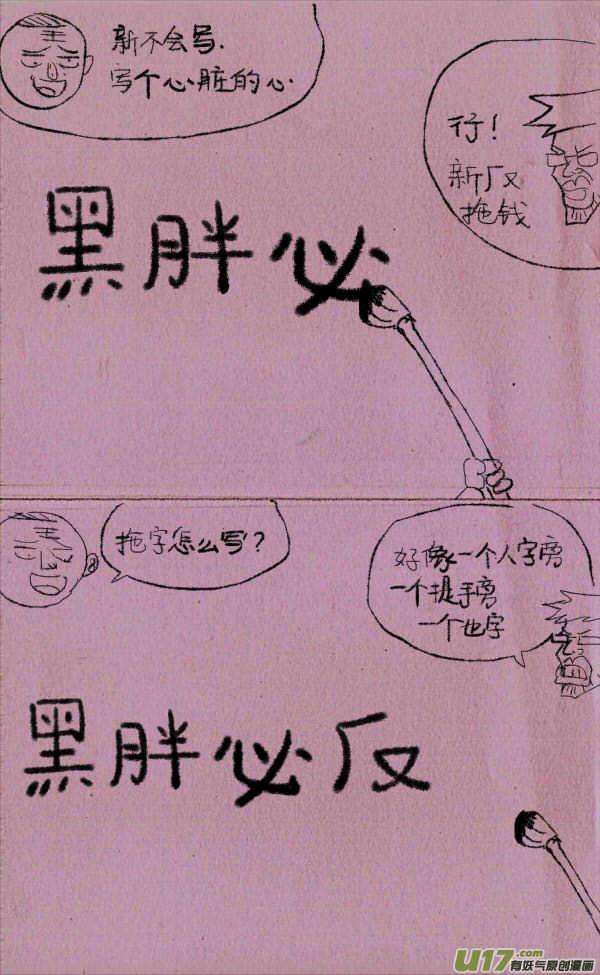 新不会写.
写个心脏的心
行！
新厂又
拖钱
黑胖必
拖字怎么写？
好像一个人字旁
一个提手旁
一个也字
黑胖必厂又
U17.com
有妖气原创漫画